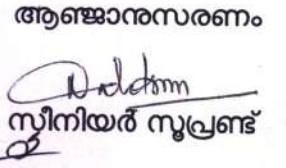 ആഞ്ജാനുസരണം
സീനിയർ സൂപ്രണ്ട്